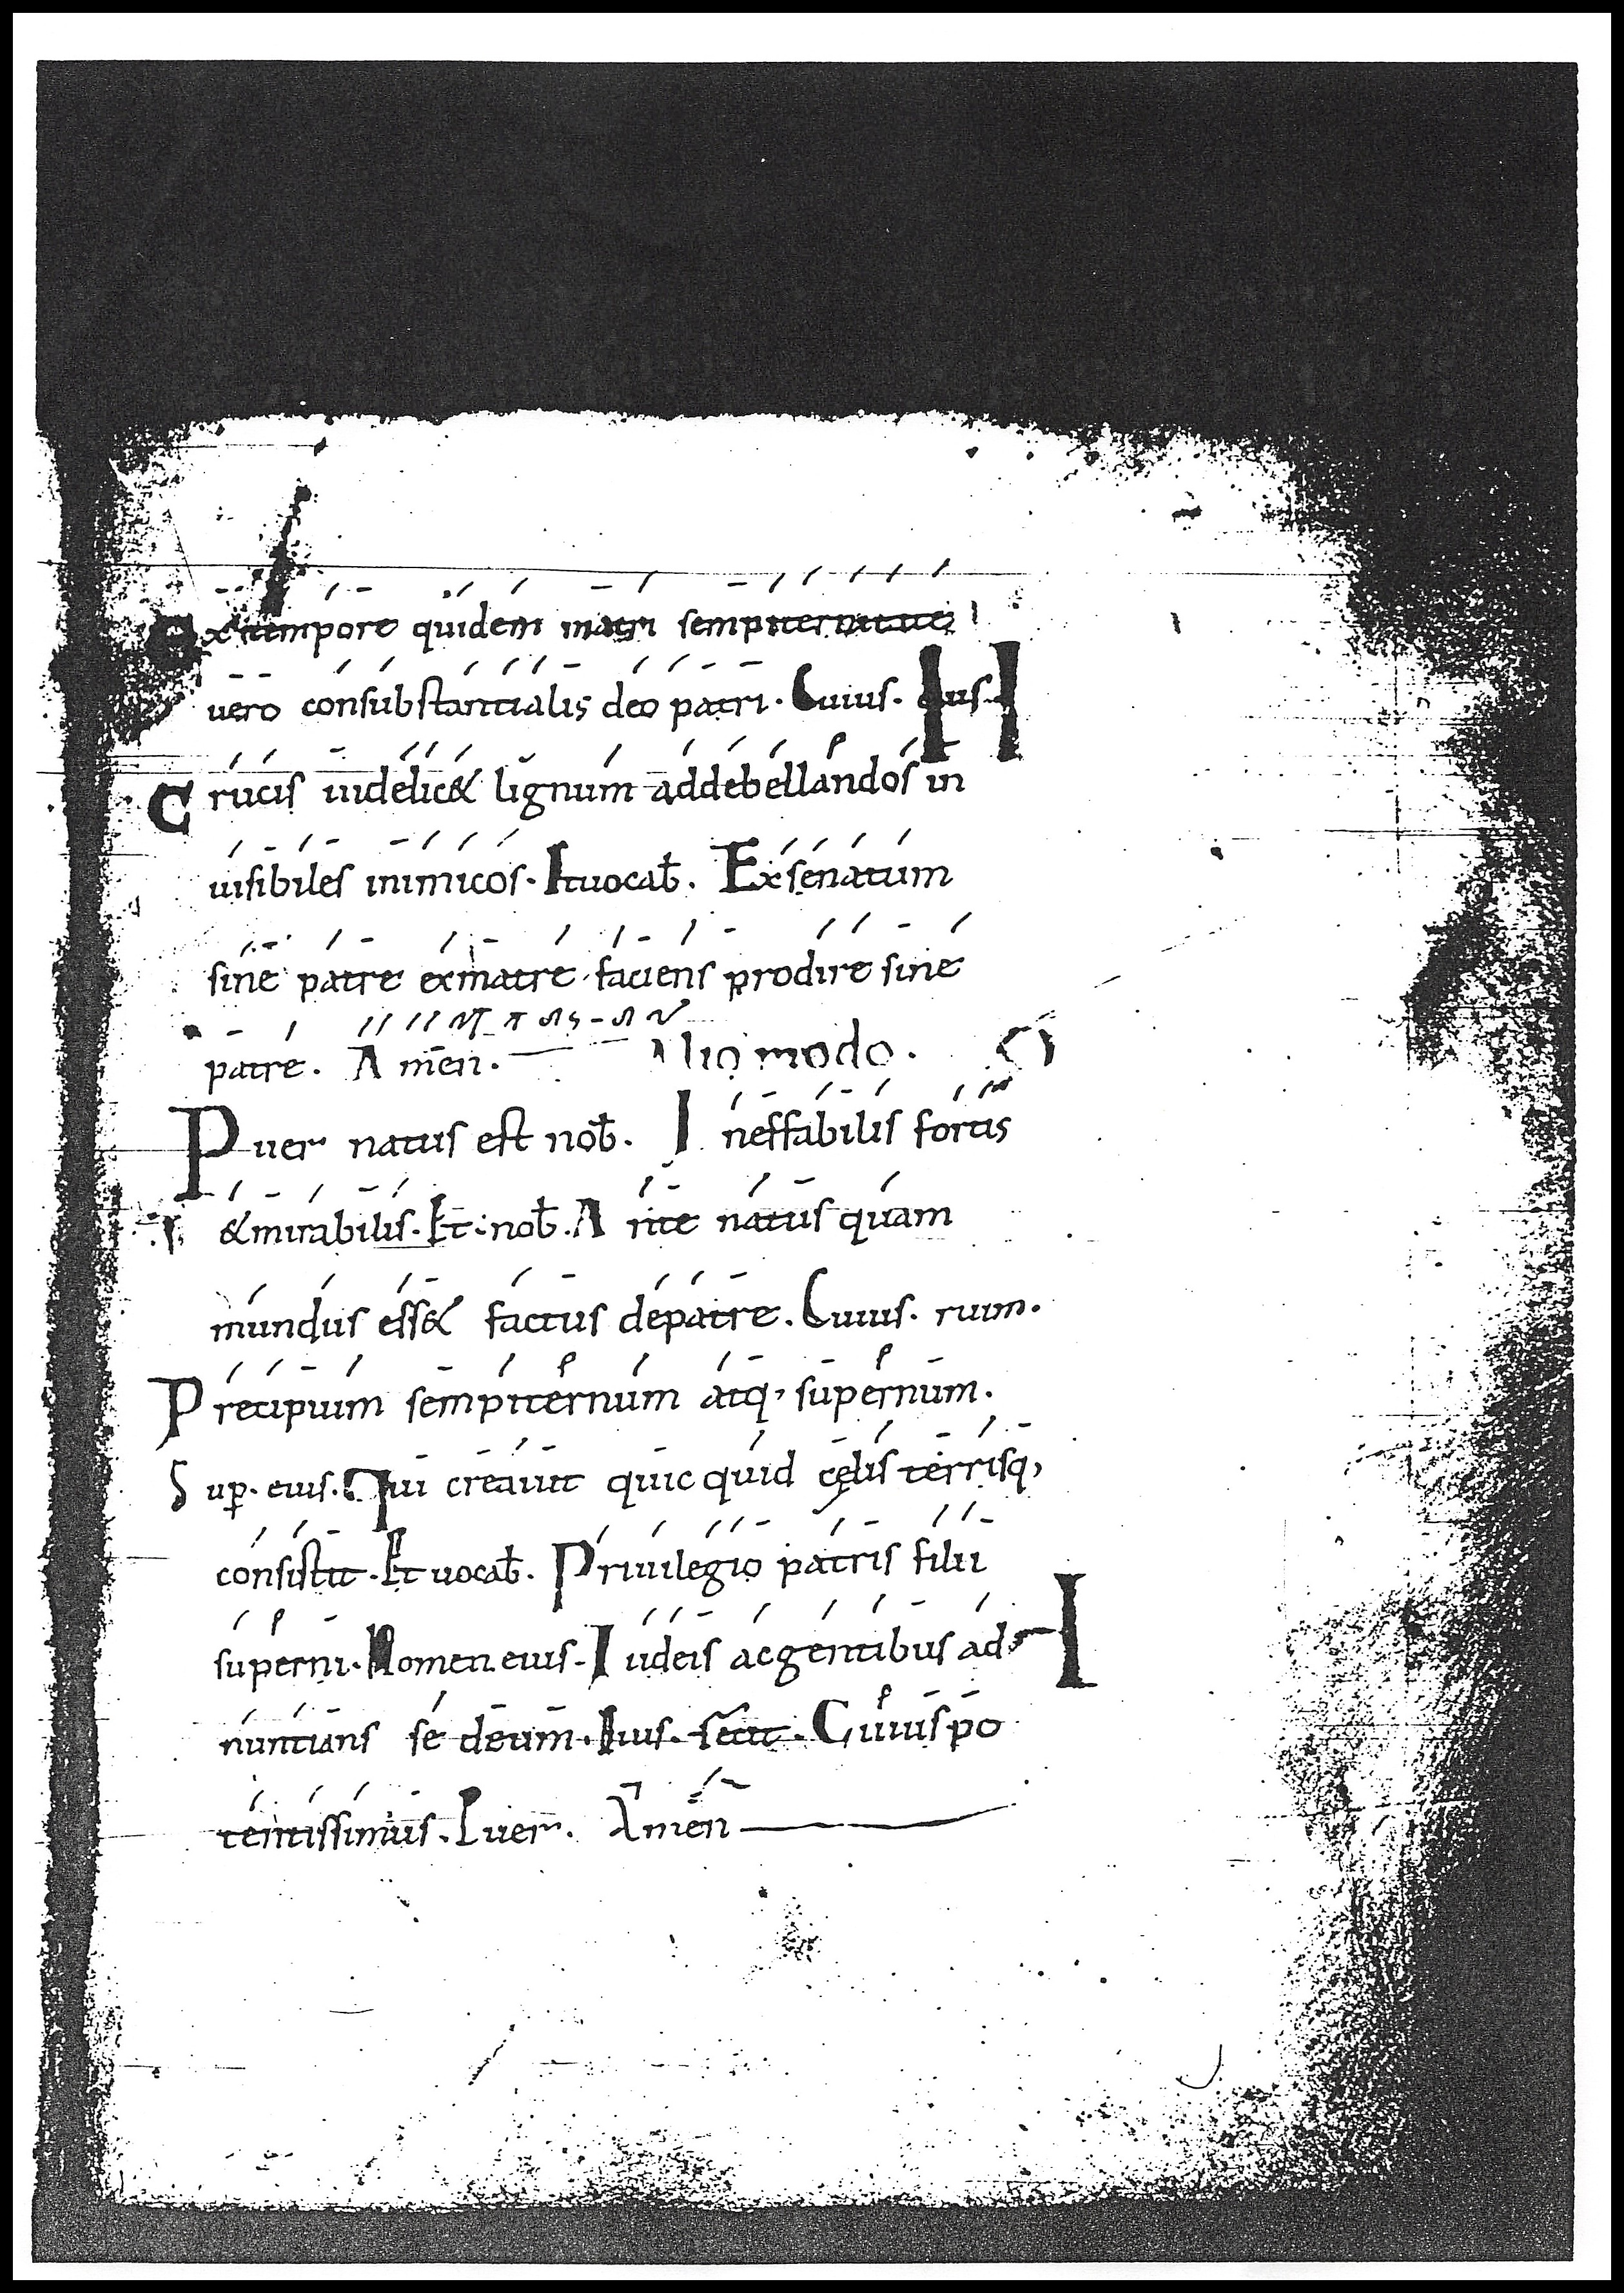 Ex tempore quidem matri sempiternitate
vero consubstantialis deo patri. Cuius. eius.
Crucis uidelic& lignum addebellandos in
uisibiles inimicos. Et uocab̄. Ex senatum
sine patre exmatre faciens prodire sine
patre. A men. Alio modo.
Puer natus est nob̄. I neffabilis fortis
&mirabilis. Et nob̄. A nte natus quam
mundus ess& factus depatre. Cuius. rium.
Precipuum sempiternum atq, supernum.
Sup̱. eius. Qui creauit quic quid cęlis terrisq,
consistit. Et uocab̄. Priuilegio patris filii
superni. Nomen eius. I udeis acgentibus ad
nuntians se deum. Eius. fecit. Cuiuspo
tentissimus. Puer. Amen